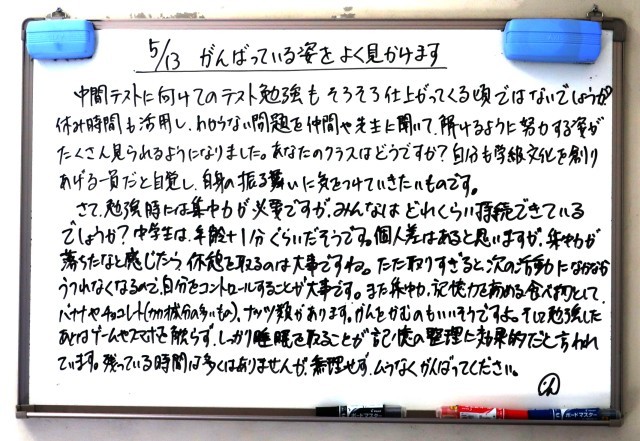 5/13 がんばっている姿をよく見かけます
中間テストに向けてのテスト勉強もそろそろ仕上がってくる頃ではないでしょうか?
休み時間も活用し、わからない問題を仲間や先生に聞いて、解けるように努力する姿が
たくさん見られるようになりました。あなたのクラスはどうですか?自分も学級文化を創り
あげる一員だと自覚し、自身の振る舞いに気をつけていきたいものです。
さて、勉強時には集中力が必要ですが、みんなはどれくらい持続できている
でしょうか?中学生は、年齢+1分ぐらいだそうです。個人差はあると思いますが、集中力が
落ちたなと感じたら、休憩を取るのは大事ですね。ただ取りすぎると次の活動になかなか
うつれなくなるので、自分をコントロールすることが大事です。また集中力、記憶力を高める食べ物として、
バナナやチョコレート(カカオ成分の多いもの)、ナッツ類があります。ガムをかむのもいいそうですよ。そして勉強した
あとはゲームやスマホを触らず、しっかり睡眠を取ることが記憶の整理に効果的だと言われ
ています。残っている時間は多くはありませんが、無理せず、ムラなくがんばってください。
ボードマスター
ボードマスター